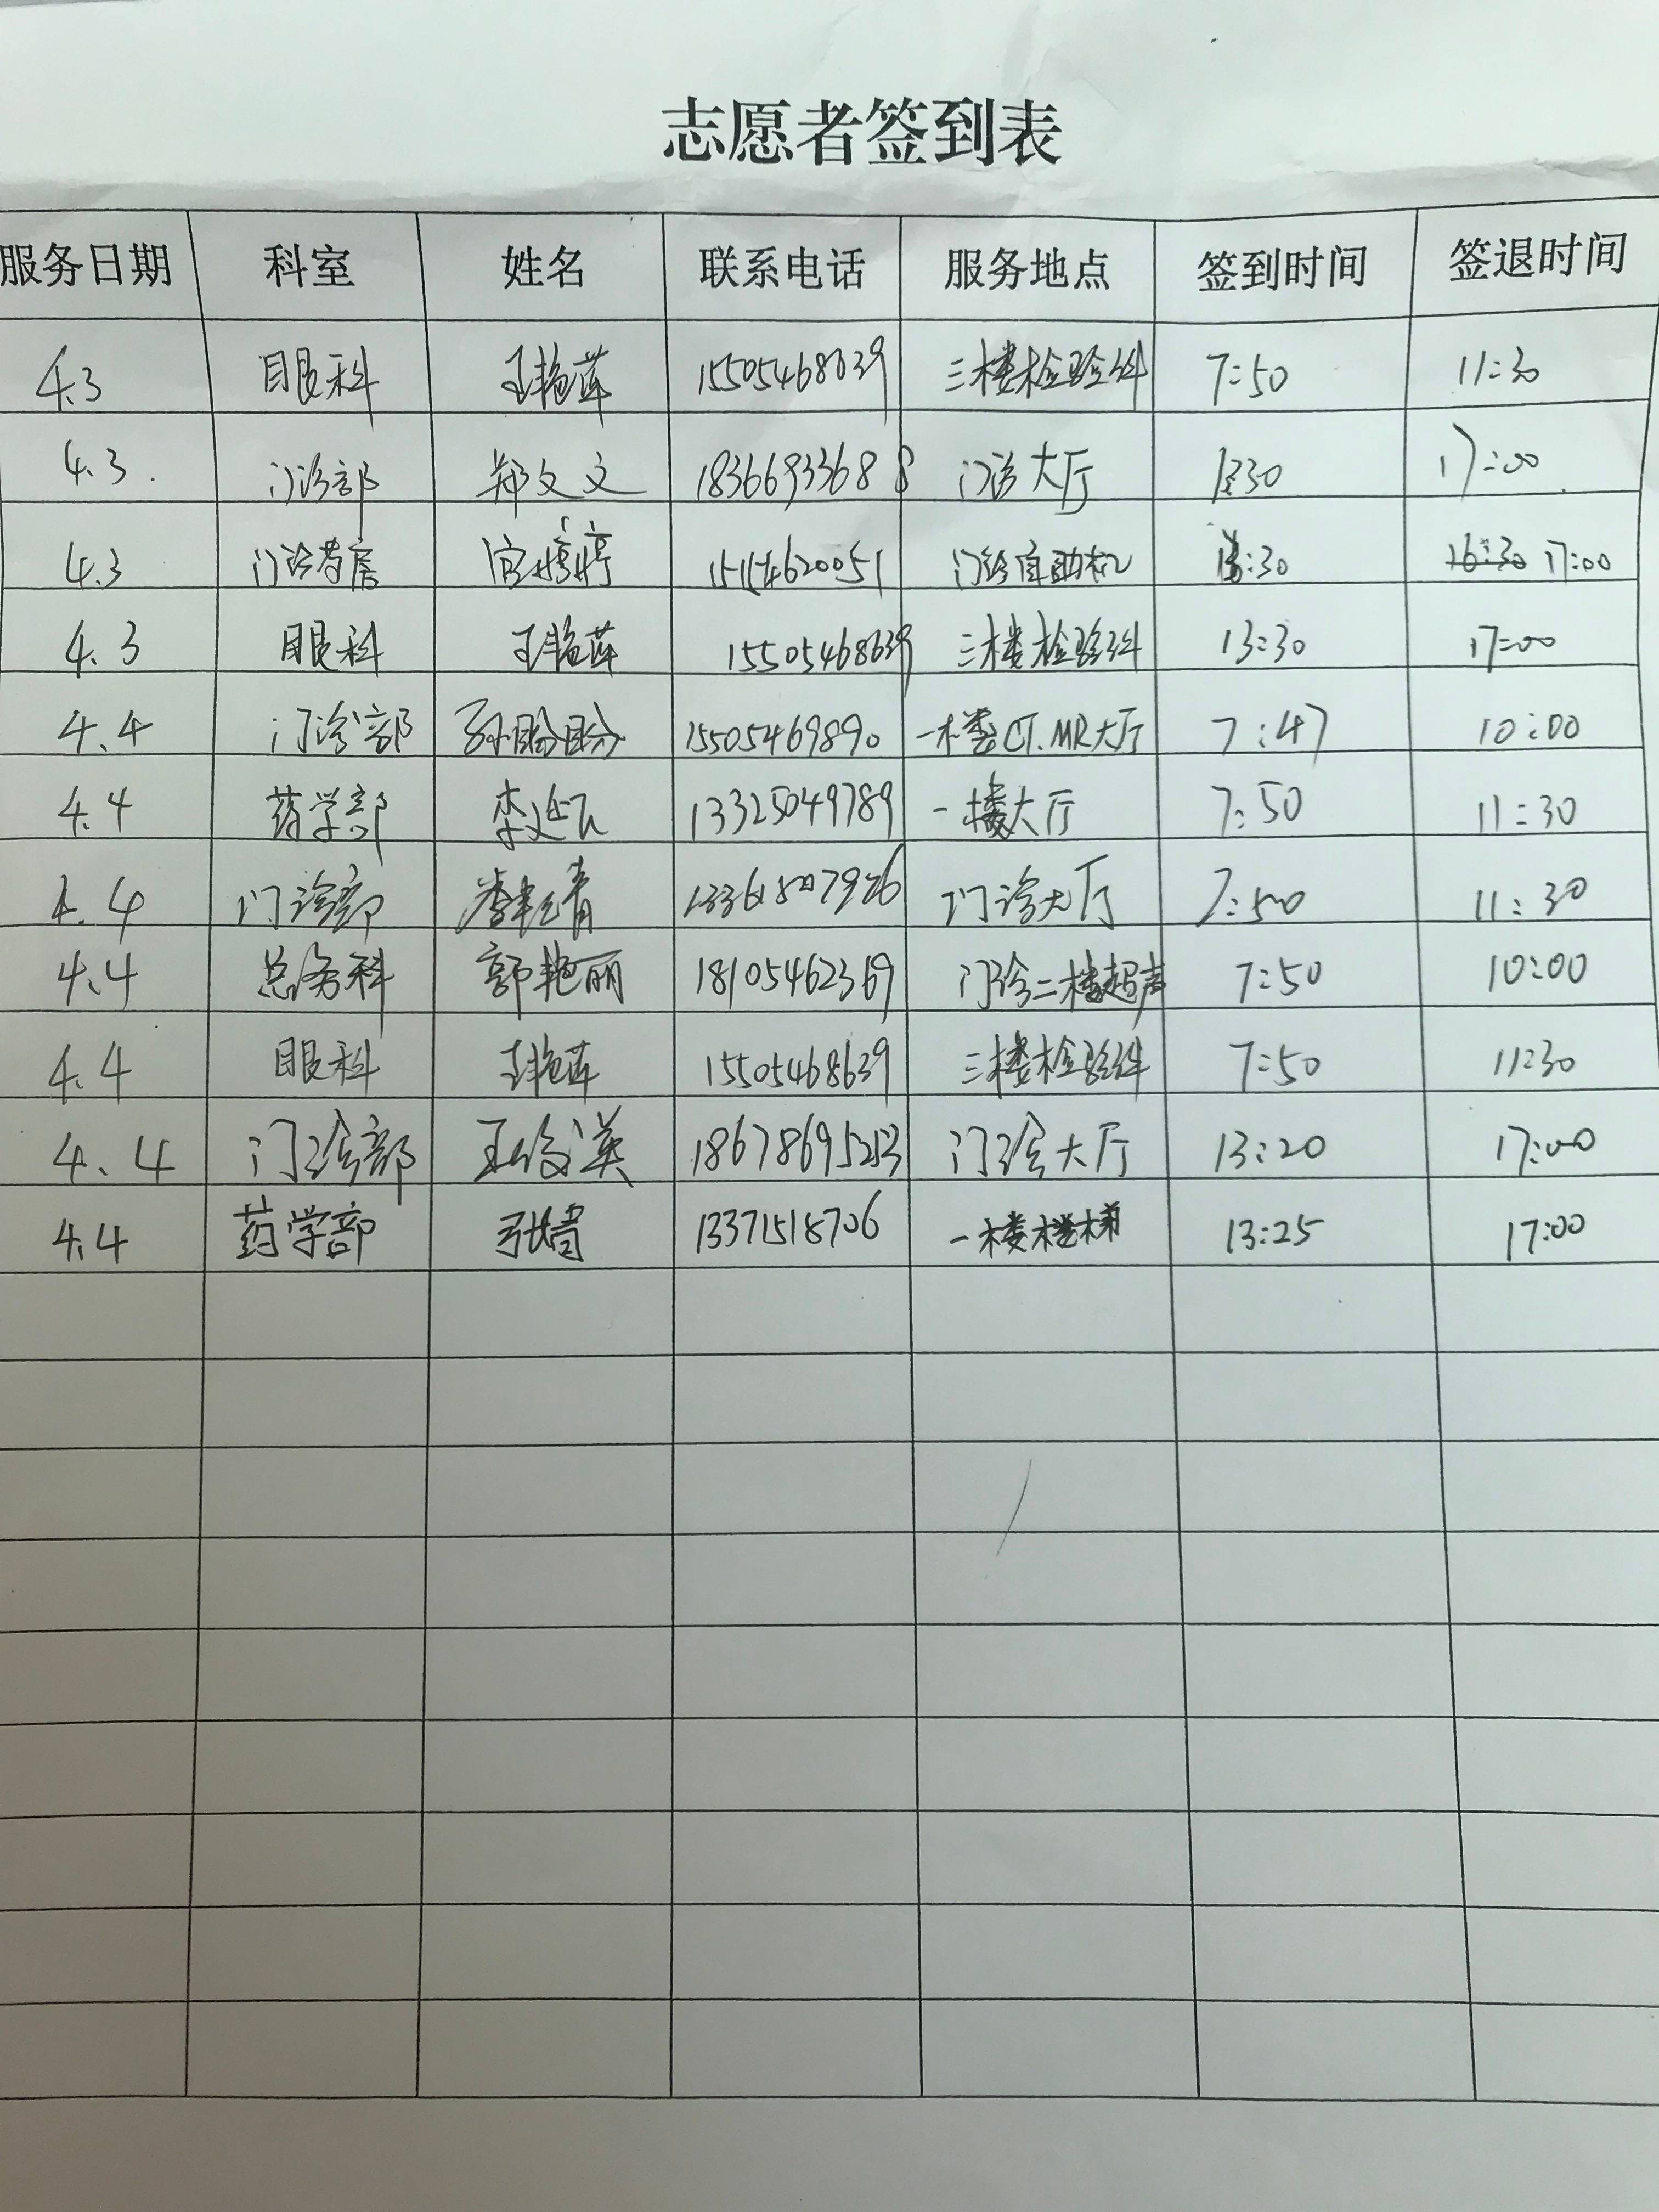 志愿者签到表
服务日期 科室 姓名 联系电话 服务地点 签到时间 签退时间
4.3 眼科 王艳萍 15505468639 三楼检验科 7:50 11:30
4.3. 门诊部 郑文文 18366933688 门诊大厅 13:30 17:00
4.3 门诊药房 宫婷婷 15154620051 门诊自助机 13:30 16:30 17:00
4.3 眼科 王艳萍 15505468639 三楼检验科 13:30 17:00
4.4 门诊部 孙盼盼 15505469890 一楼CT.MR大厅 7:47 10:00
4.4 药学部 李延飞 13325049789 一楼大厅 7:50 11:30
4.4 门诊部 门诊大厅 7:50 11:30
4.4 总务科 郭艳丽 18105462369 门诊二楼超声 7:50 10:00
4.4 眼科 王艳萍 15505468639 三楼检验科 7:50 11:30
4.4 门诊部 王俊英 门诊大厅 13:20 17:00
4.4 药学部 13371518706 一楼楼梯 13:25 17:00